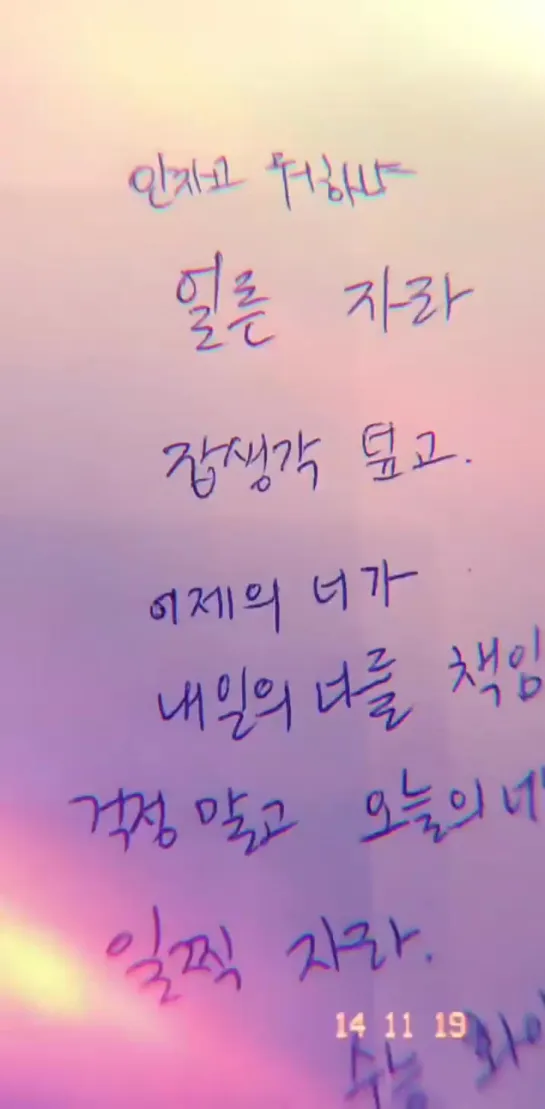 안자고 뭐하냐
얼른 자라
잡생각 덮고.
어제의 너가
내일의 너를 책임
걱정 말고 오늘의 네
일찍 자라.
14 11 19
수능